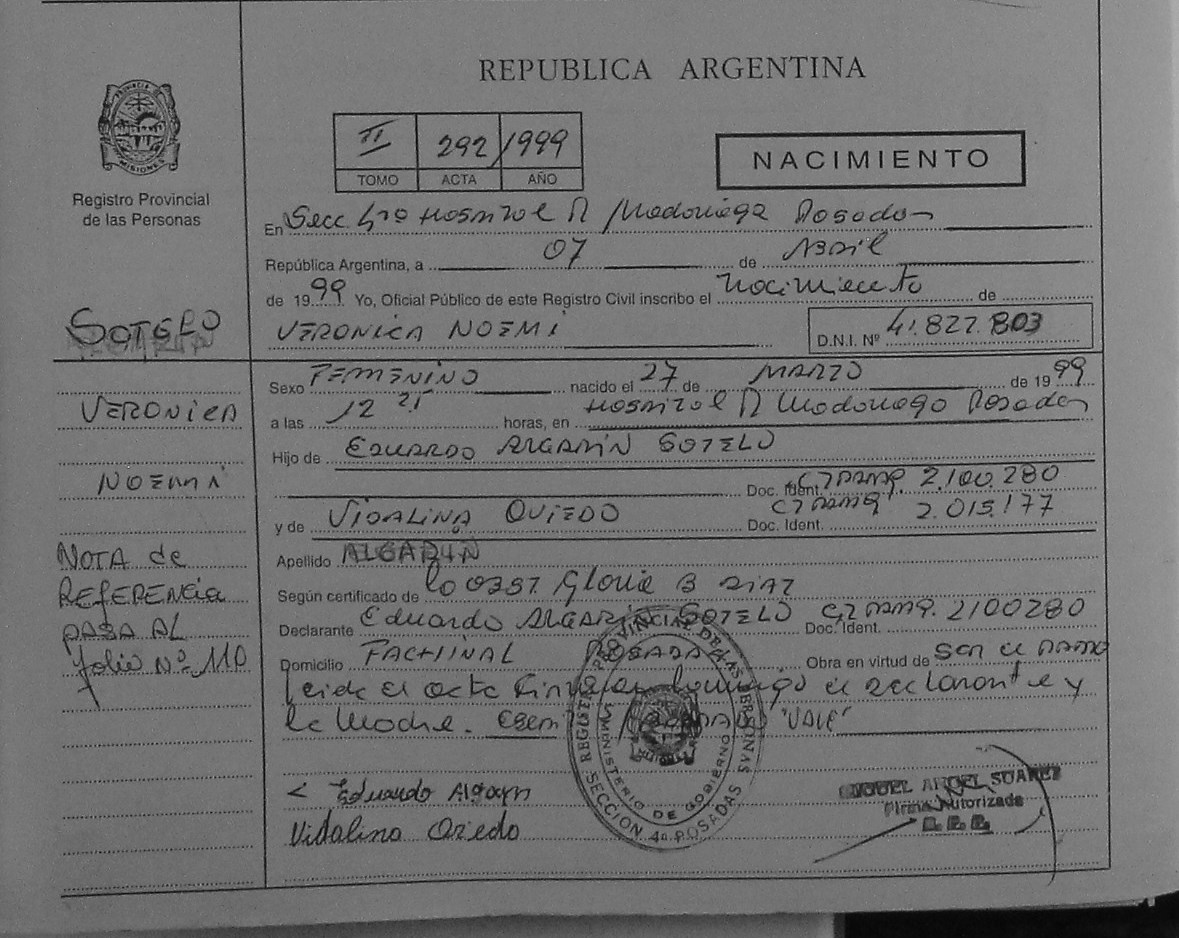 REPUBLICA ARGENTINA
PROVINCIA DE MISIONES
Registro Provincial
de las Personas
II 292 1999
TOMO ACTA AÑO
NACIMIENTO
En Secc 4ta Hospital R Madariaga Posadas
República Argentina, a 07 de Abril
de 1999 Yo, Oficial Público de este Registro Civil inscribo el nacimiento de
SOTELO
VERONICA NOEMI
D.N.I. Nº 41.827.803
Sexo FEMENINO nacido el 27 de MARZO de 1999
VERONICA
a las 12 21 horas, en Hospital R Madariaga Posadas
Hijo de EDUARDO ALGARIN SOTELO
NOEMI
Doc. Ident. 2.100.280
y de VIDALINA OVIEDO Doc. Ident. 2.015.177
NOTA de
REFERENCIA
PASA AL
folio Nº 110
Apellido ALGARIN
Según certificado de Gloria B DIAZ
Declarante Eduardo ALGARIN SOTELO Doc. Ident. 2100280
Domicilio FACHINAL POSADAS Obra en virtud de ser el PADRE
Leida el acta firman conmigo el declarante y
la Madre. "VALE"
Eduardo Algarin
Vidalina Oviedo
REGISTRO PROVINCIAL DE LAS PERSONAS
MINISTERIO DE GOBIERNO
SECCION 4a POSADAS
MIGUEL ANGEL SUAREZ
Firma Autorizada